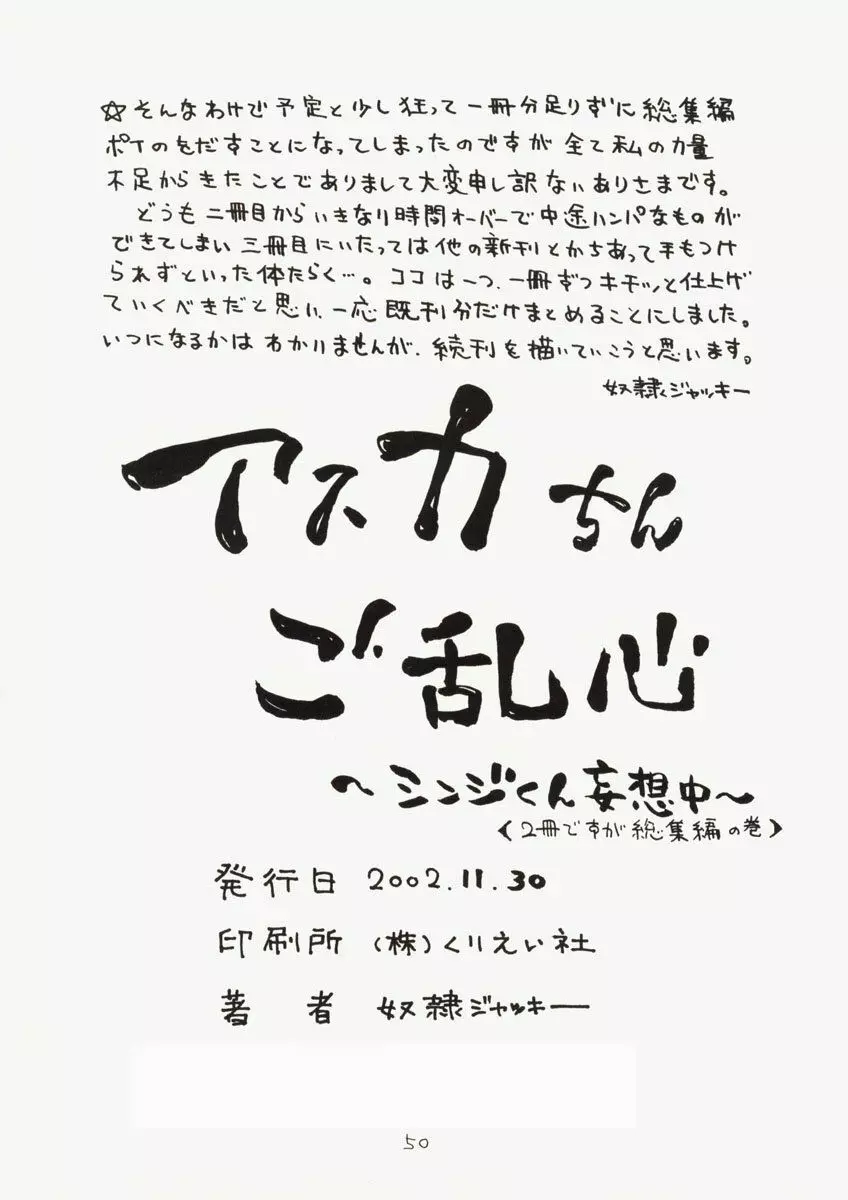 ☆そんなわけで予定と少し狂って一冊分足りずに総集編
ポイのをだすことになってしまったのですが全て私の力量
不足からきたことでありまして大変申し訳ないありさまです。
どうも二冊目からいきなり時間オーバーで中途ハンパなものが
できてしまい三冊目にいたっては他の新刊とかちあって手もつけ
られずといった体たらく…。ココは一つ、一冊ずつキチッと仕上げ
ていくべきだと思い、一応既刊分だけまとめることにしました。
いつになるかはわかりませんが、続刊を描いていこうと思います。
奴隷ジャッキー
アスカちん
ご乱心
～シンジくん妄想中～
（2冊ですが総集編の巻）
発行日 2002.11.30
印刷所 （株）くりえい社
著者 奴隷ジャッキー
50